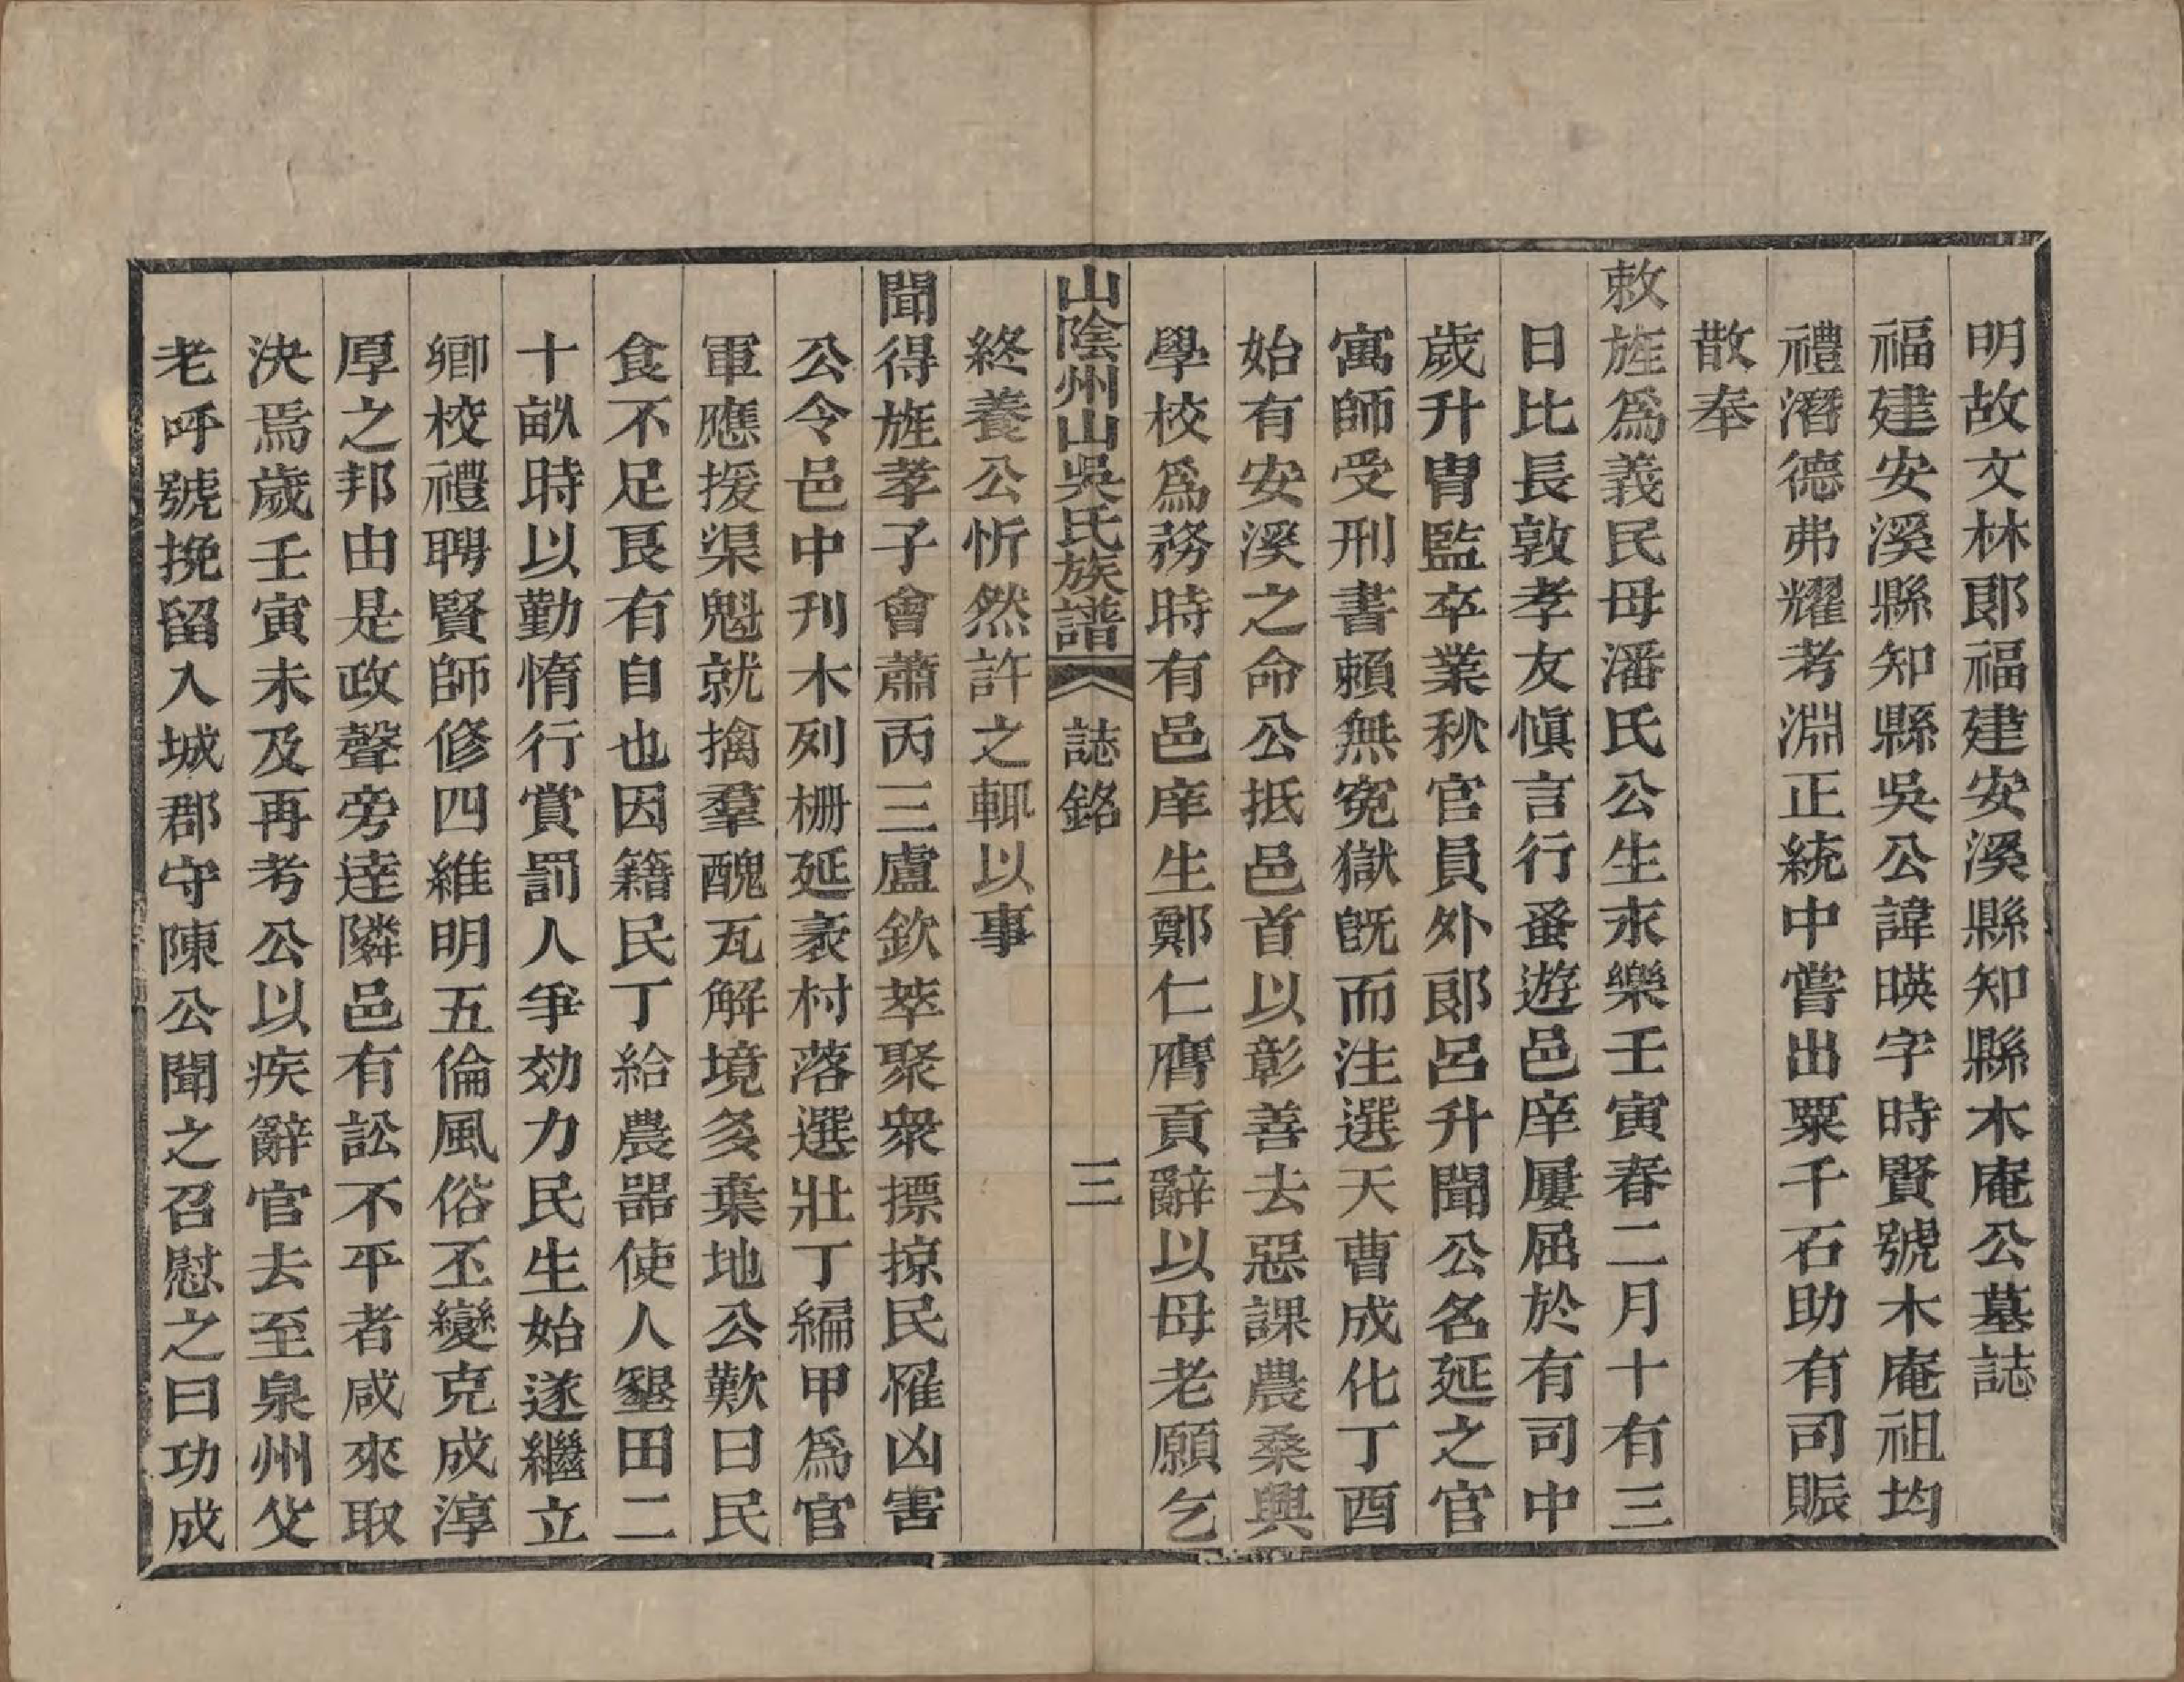 明故文林郞福建安溪縣知縣木庵公墓誌
福建安溪縣知縣吳公諱暎字時賢號木庵祖均
禮潛德弗耀考淵正統中嘗出粟千石助有司賑
散奉
敕旌爲義民母潘氏公生永樂壬寅春二月十有三
日比長敦孝友愼言行蚤遊邑庠屢屈於有司中
歲升冑監卒業秋官員外郞呂升聞公名延之官
寓師受刑書賴無寃獄旣而注選天曹成化丁酉
始有安溪之命公抵邑首以彰善去惡課農桑興
學校爲務時有邑庠生鄭仁膺貢辭以母老願乞
山陰州山吳氏族譜 誌銘 三
終養公忻然許之輒以事
聞得旌孝子會蕭丙三盧欽萃聚衆摽掠民罹凶害
公令邑中刋木列栅延袤村落選壯丁編甲爲官
軍應援渠魁就擒羣醜瓦解境多棄地公歎曰民
食不足艮有自也因籍民丁給農器使人墾田二
十畝時以勤惰行賞罰人爭効力民生始遂繼立
鄉校禮聘賢師修四維明五倫風俗丕變克成淳
厚之邦由是政聲旁達隣邑有訟不平者咸來取
決焉歲壬寅未及再考公以疾辭官去至泉州父
老呼號挽留入城郡守陳公聞之召慰之曰功成